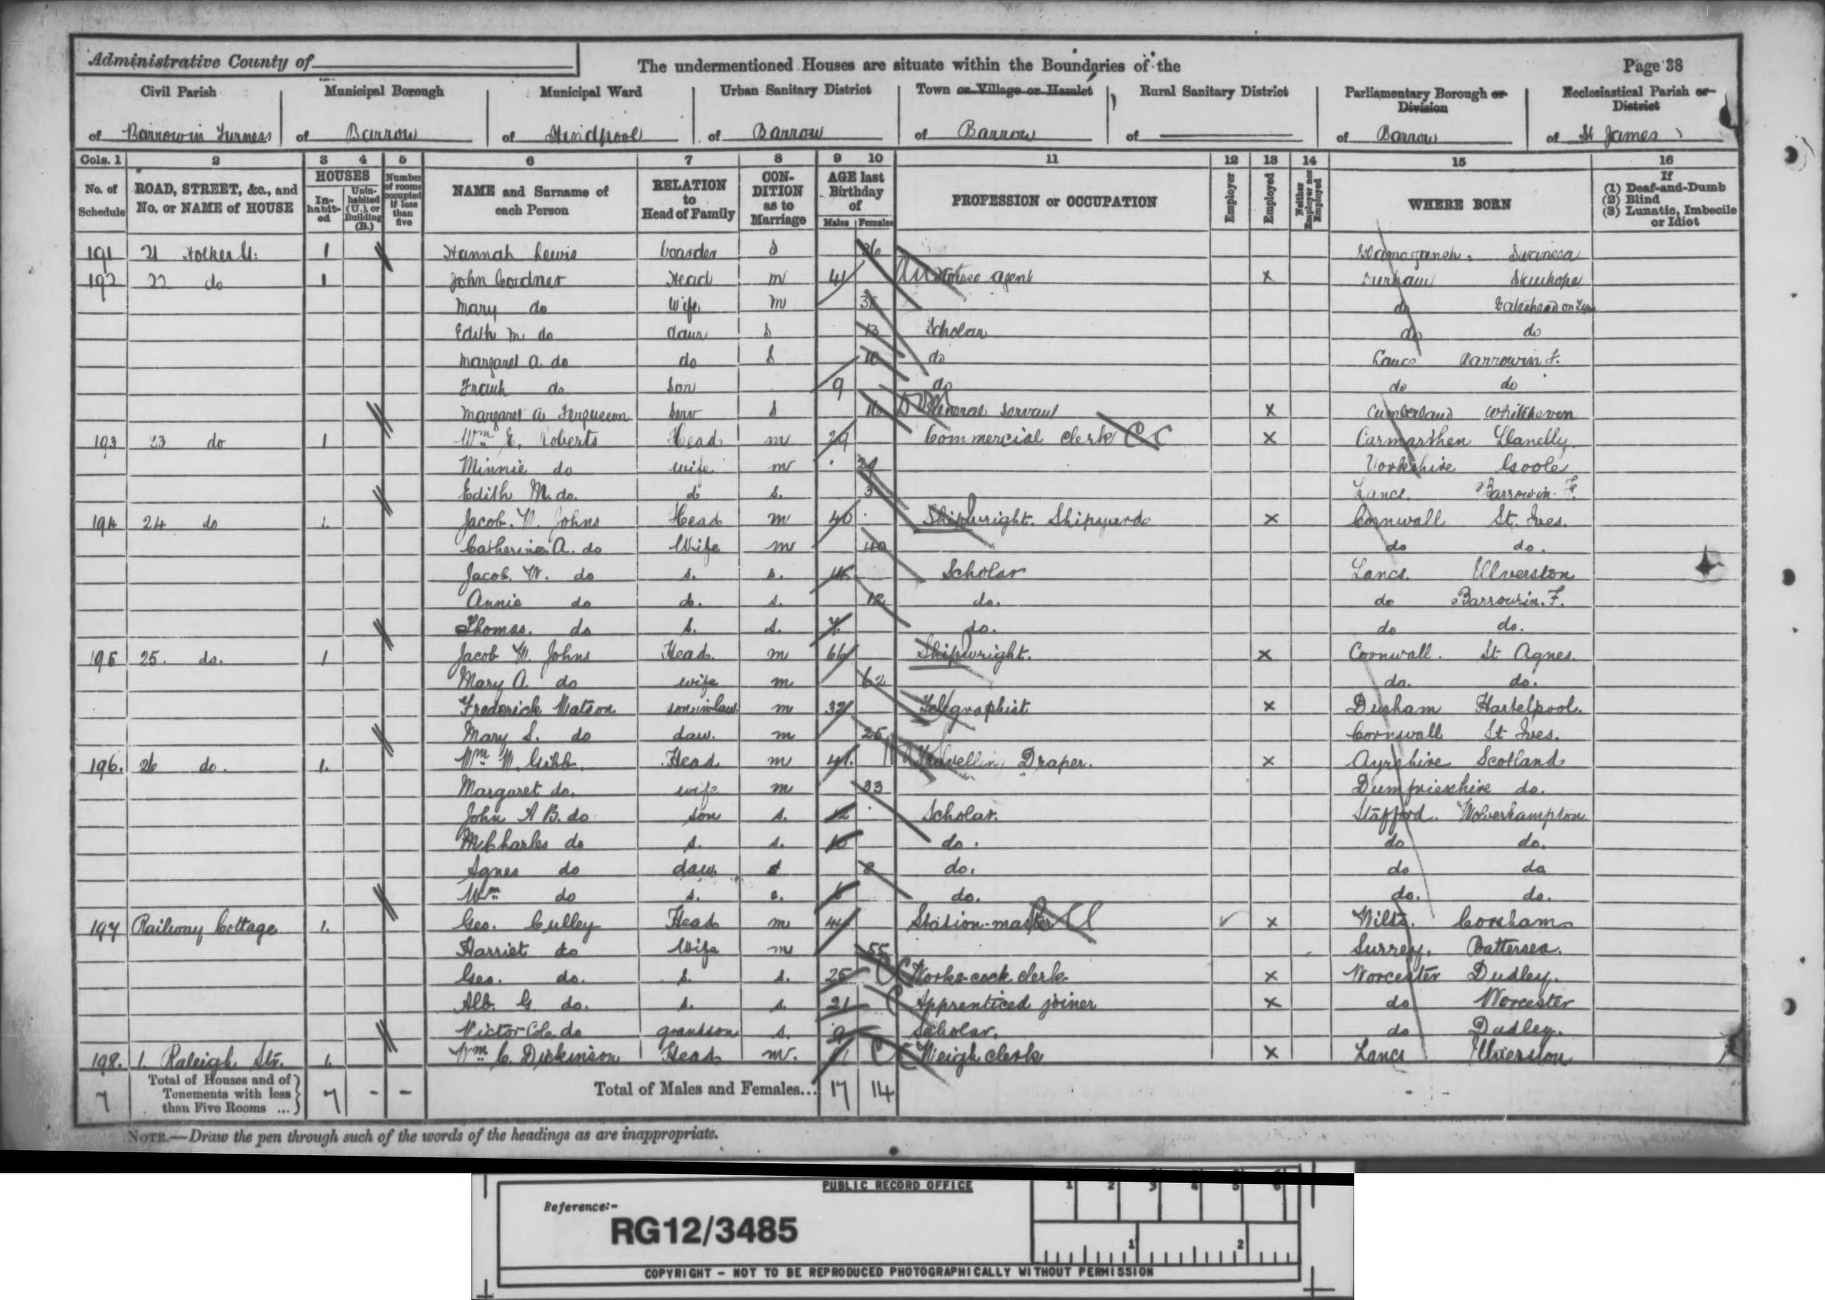 Administrative County of
The undermentioned Houses are situate within the Boundaries of the
Page 38
Civil Parish Municipal Borough Municipal Ward Urban Sanitary District Town or Village or Hamlet Rural Sanitary District Parliamentary Borough or Division Ecclesiastical Parish or District
of Barrow in Furness of Barrow of Hindpool of Barrow of Barrow of of Barrow of St James
Cols. 1 2 3 4 5 6 7 8 9 10 11 12 13 14 15 16
No. of Schedule ROAD, STREET, &c., and No. or NAME of HOUSE HOUSES In-habit-ed Unin-habited (U.), or Building (B.) Number of rooms occupied if less than five NAME and Surname of each Person RELATION to Head of Family CON-DITION as to Marriage AGE last Birthday of Males Females PROFESSION or OCCUPATION Employer Employed Neither Employer nor Employed WHERE BORN If (1) Deaf-and-Dumb (2) Blind (3) Lunatic, Imbecile or Idiot
191 21 Hotker St. 1 Hannah Lewis boarder S Swansea
192 22 do 1 John Cordner Head m 41 agent x Durham
Mary do Wife m do Gateshead on Tyne
Edith M. do daur S 13 Scholar do do
Margaret A. do do S 10 do Lancs Barrow in F.
Frank do Son 9 do do do
Margaret A. Ferguson Serv S General Servant x Cumberland Whitehaven
193 23 do 1 Wm E. Roberts Head m 29 Commercial clerk CC x Carmarthen Llanelly
Minnie do wife m 29 Yorkshire Goole
Edith M. do. d s. 3 Lancs. Barrow in F.
194 24 do 1. Jacob. W. Johns Head m 40 Shipwright. Shipyard x Cornwall St. Ives.
Catherine A. do Wife m 40 do do.
Jacob. W. do s. s. 14 Scholar Lancs. Ulverston
Annie do d. s. 12 do. do Barrow in. F.
Thomas. do s. s. 7 do. do do.
195 25. do. 1 Jacob W. Johns Head. m 66 Shipwright. x Cornwall. St Agnes.
Mary A. do wife m 62 do. do.
Frederick Watson son in law m 32 Telegraphist x Durham Hartelpool.
Mary S. do daur. m 25 Cornwall St Ives.
196. 26 do. 1. Wm W. Gibb. Head m 41. Travellin Draper. x Ayrshire Scotland
Margaret do. wife m 33 Dumfrieshire do.
John A B. do son s. 12 Scholar. Stafford. Wolverhampton
McCharles do s. s. 10 do. do do.
Agnes do daur. s 8 do. do do
Wm do s. s. 6 do. do. do.
197 Railway Cottage 1. Geo. Culley Head m Station-master x Wilts. Corsham
Harriet do Wife m 55 Surrey. Battersea.
Geo. do. s. s. 25 clerk x Worcester Dudley.
Alb. G do. s. s. 21 Apprenticed joiner x do Worcester
Victor do grandson s. 9 Scholar. do Dudley.
198. 1. Raleigh Str. 1. Wm C. Dickinson Head m. Weigh clerk x Lancs Ulverston
7 Total of Houses and of Tenements with less than Five Rooms ... 7 - - Total of Males and Females... 17 14
NOTE.—Draw the pen through such of the words of the headings as are inappropriate.
PUBLIC RECORD OFFICE
Reference:-
RG12/3485
1 2 3 4 5 6
1 2
COPYRIGHT - NOT TO BE REPRODUCED PHOTOGRAPHICALLY WITHOUT PERMISSION